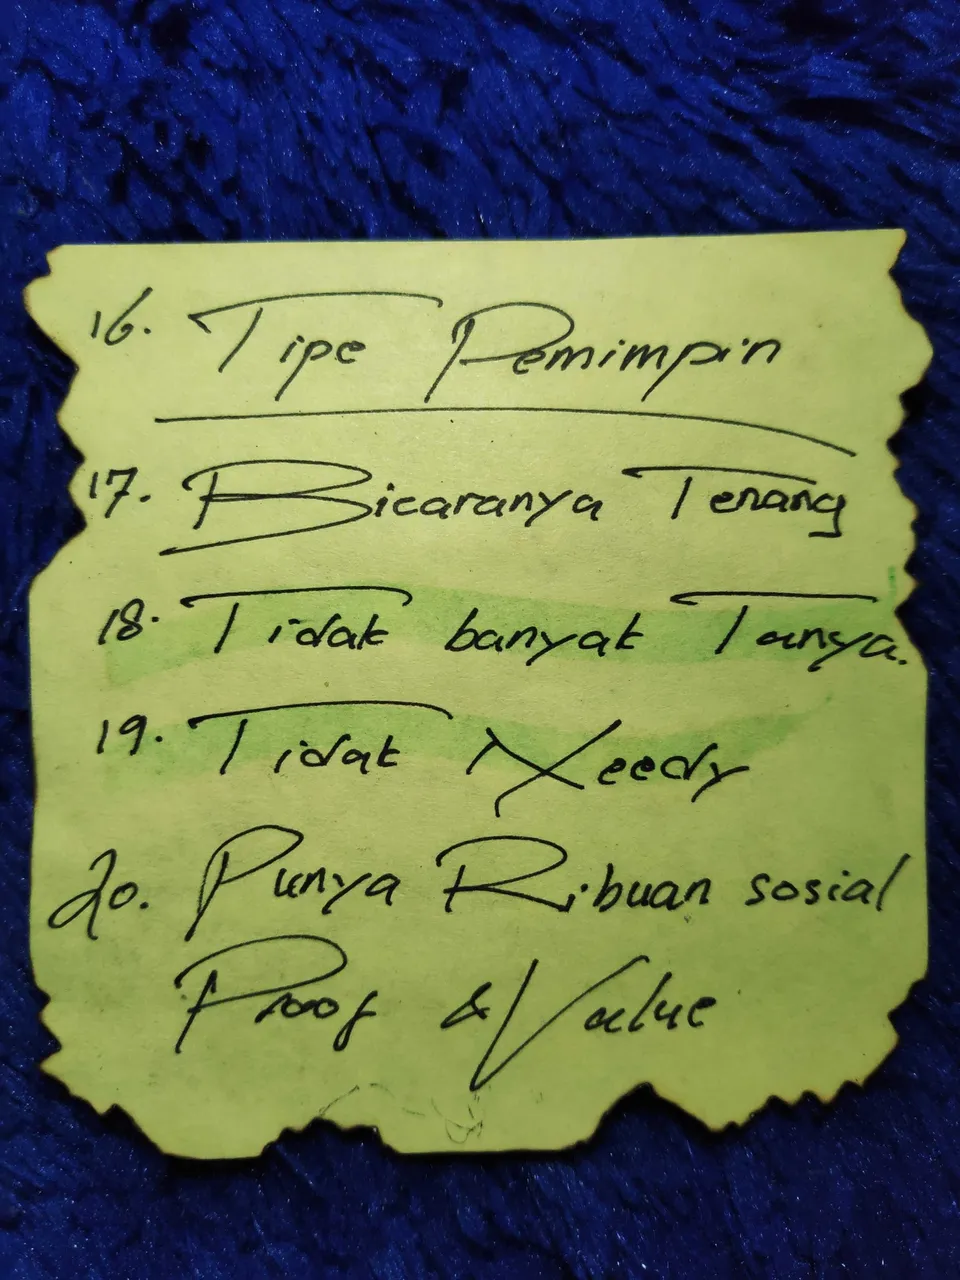 16. Tipe Pemimpin
17. Bicaranya Tenang
18. Tidak banyak Tanya.
19. Tidak Needy
20. Punya Ribuan sosial
Proof & Value